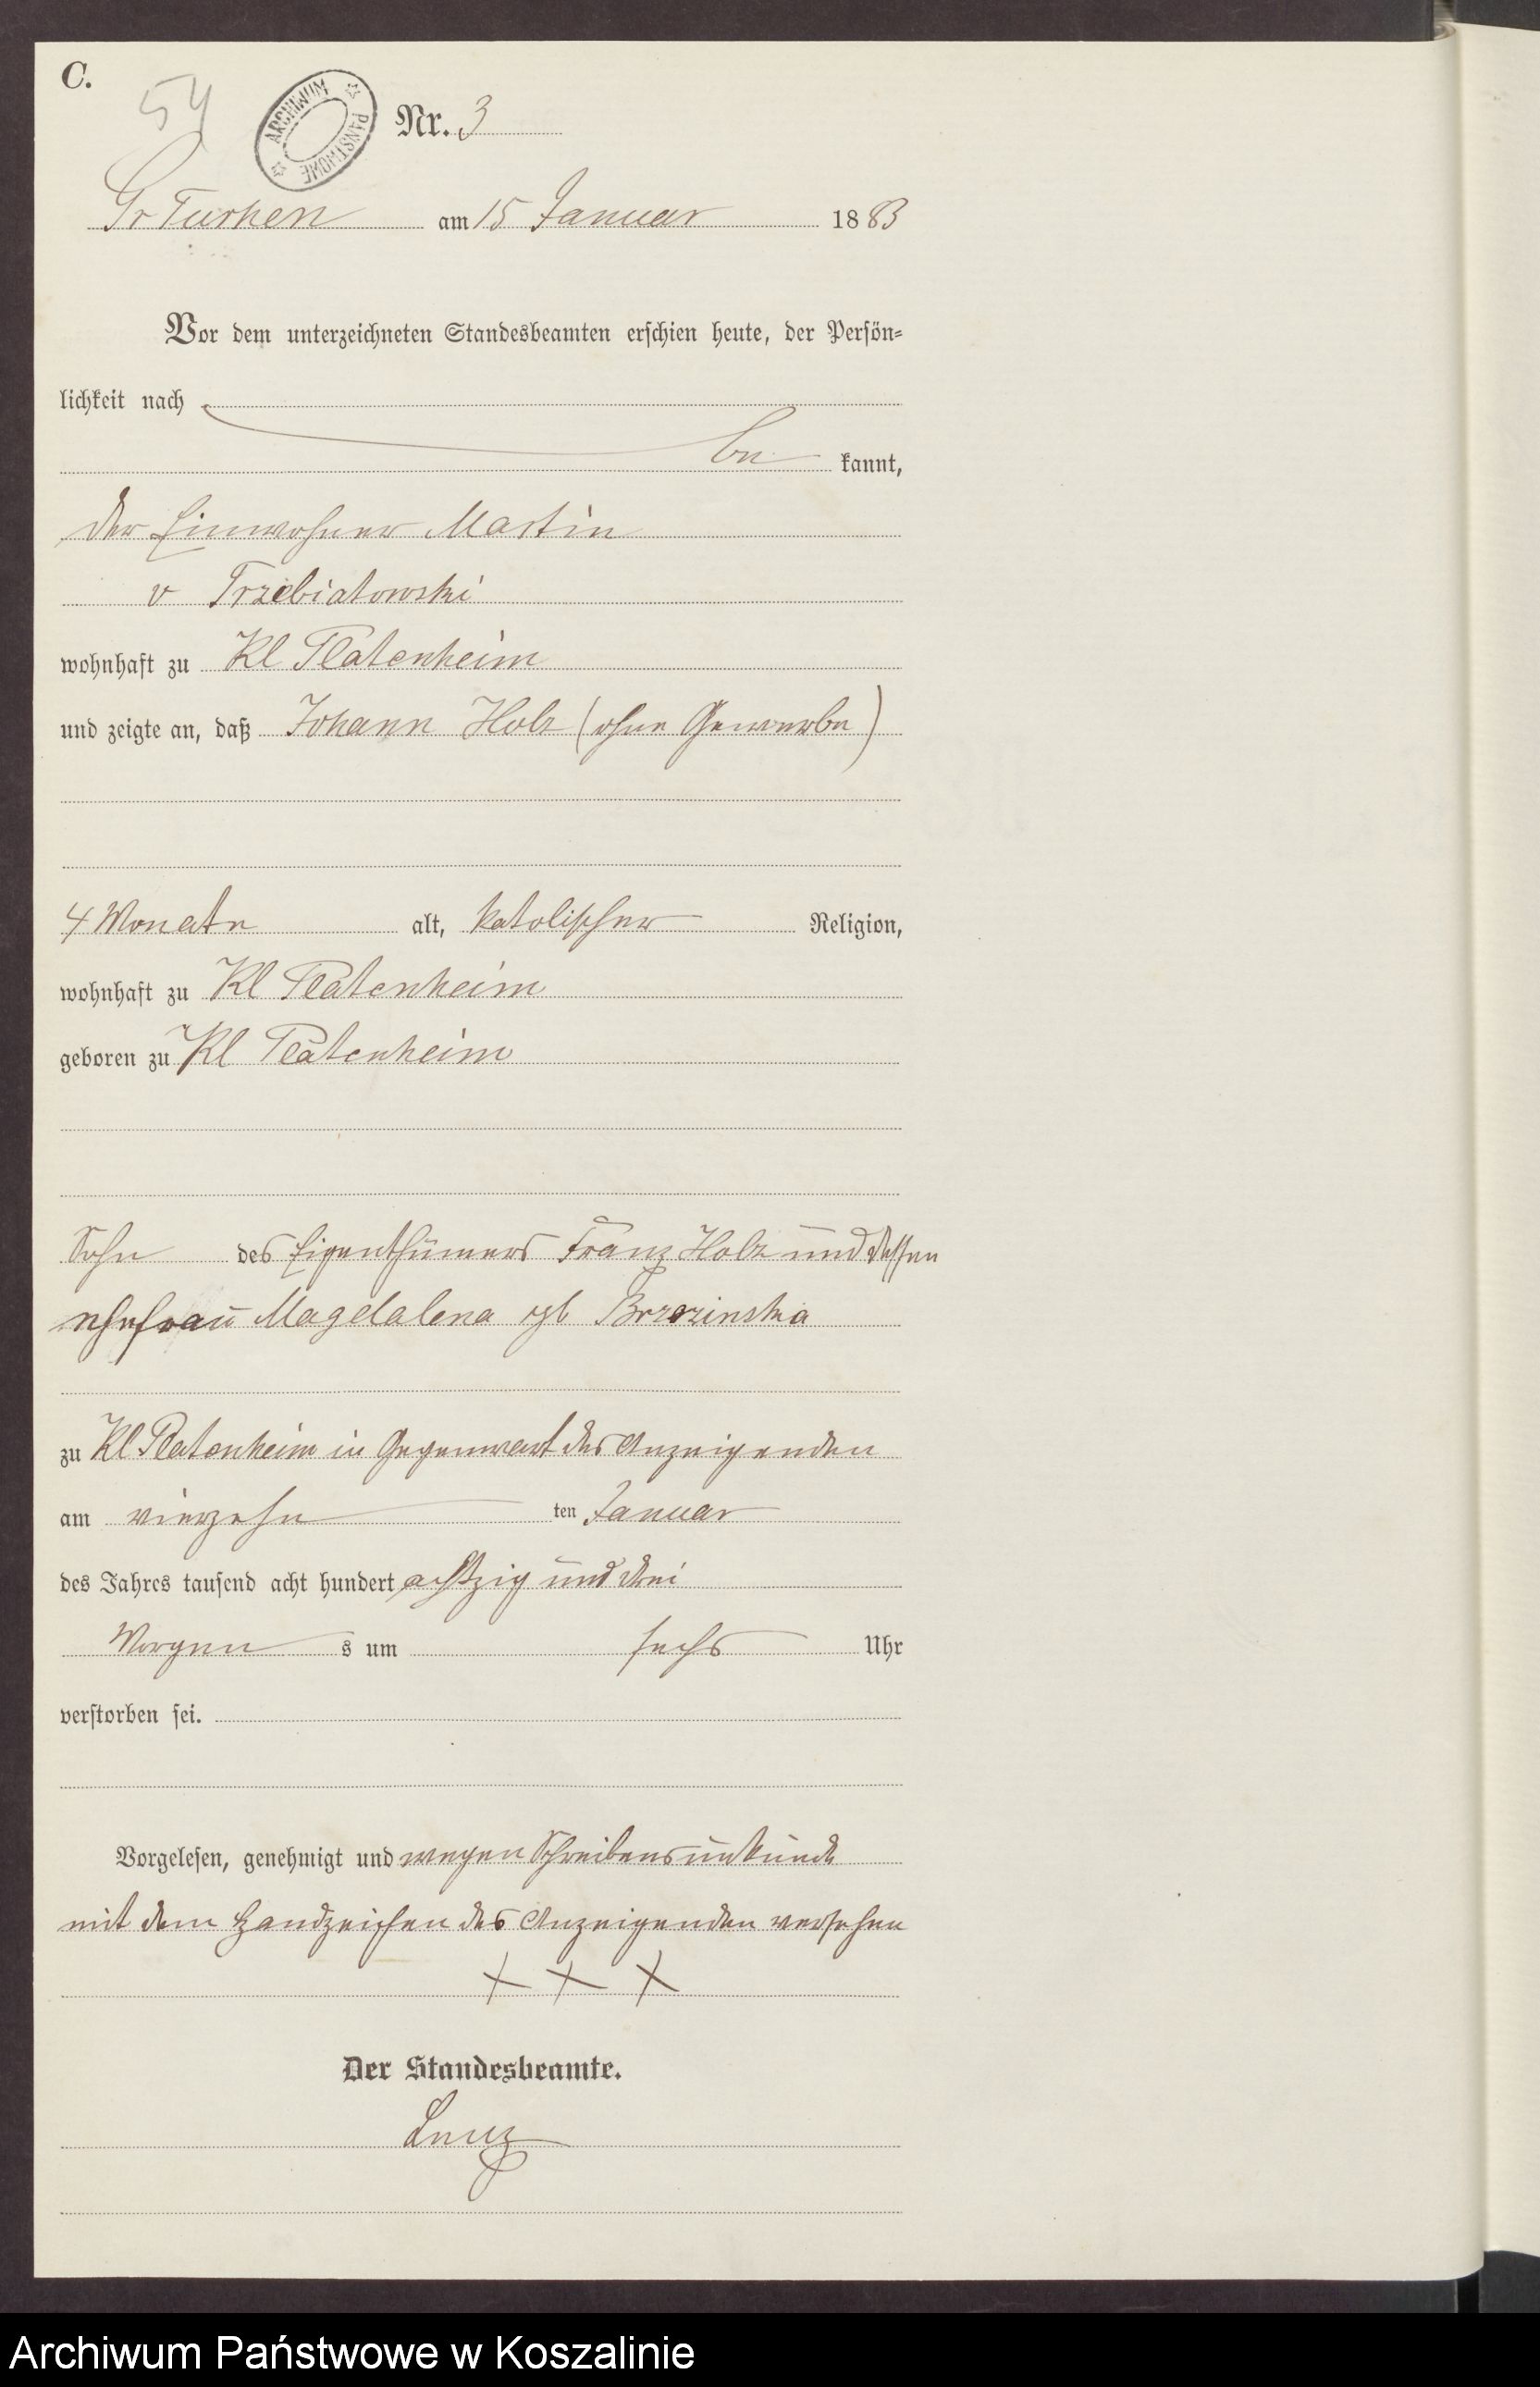 C.
54
ARCHIWUM PAŃSTWOWE
Nr. 3
Gr Tuchen am 15 Januar 1883
Vor dem unterzeichneten Standesbeamten erschien heute, der Persön-
lichkeit nach
be kannt,
der Einwohner Martin
v Trzebiatowski
wohnhaft zu Kl Platenheim
und zeigte an, daß Johann Holz (ohne Gewerbe)
4 Monate alt, katolischer Religion,
wohnhaft zu Kl Platenheim
geboren zu Kl Platenheim
Sohn des Eigenthümers Franz Holz und dessen
Ehefrau Magdalena geb Brzezinska
zu Kl Platenheim in Gegenwart des Anzeigenden
am vierzehn ten Januar
des Jahres tausend acht hundert achtzig und drei
Morgen s um sechs Uhr
verstorben sei.
Vorgelesen, genehmigt und wegen Schreibensunkunde
mit dem Handzeichen des Anzeigenden versehen
+ + +
Der Standesbeamte.
Archiwum Państwowe w Koszalinie